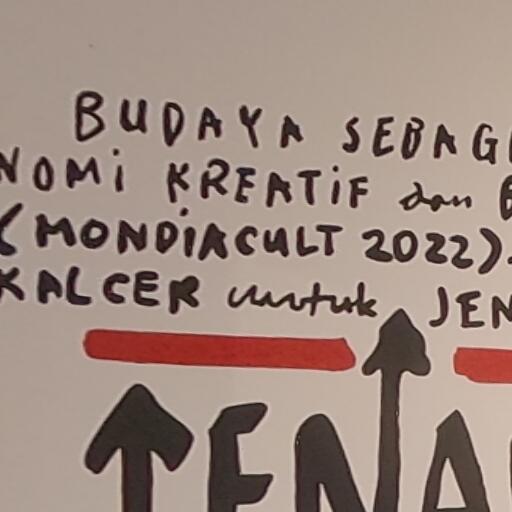 BUDAYA SEBAG
NOMi KREATiF dan B
(MONDiACULT 2022).
KALCER untuk JEN
TENA